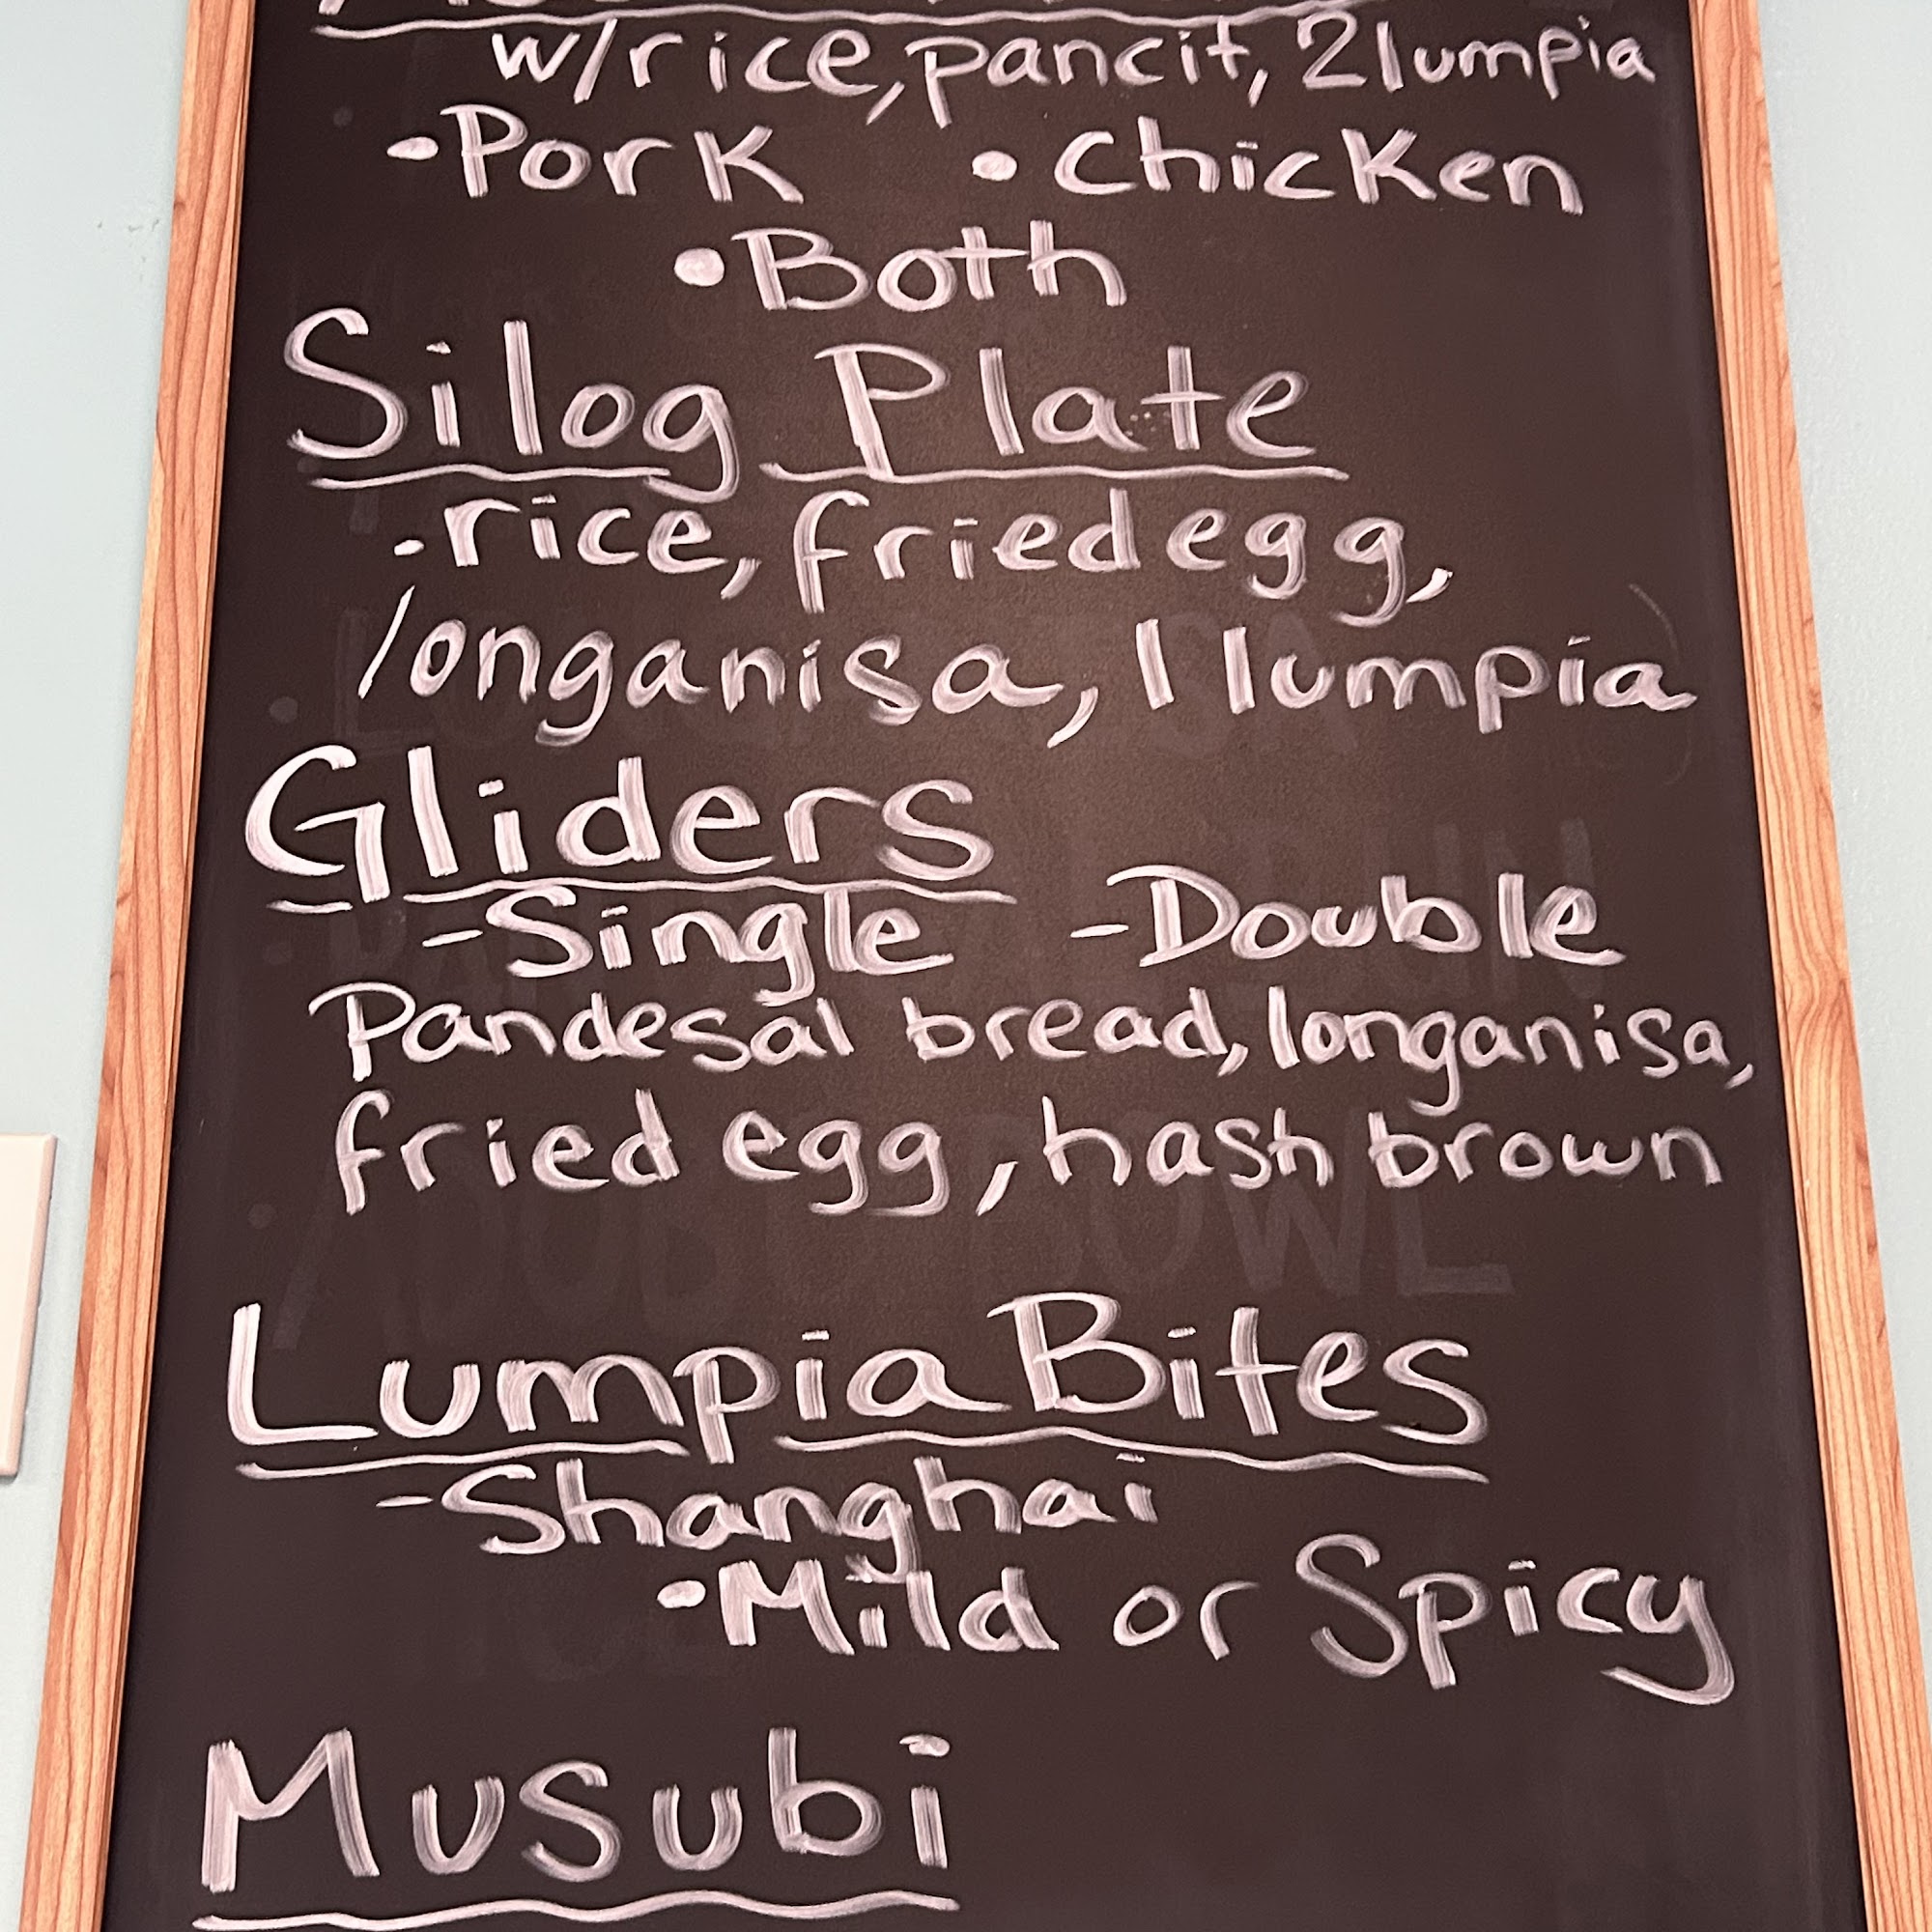 w/rice, pancit, 2 lumpia
•Pork •Chicken
•Both
Silog Plate
•rice, fried egg,
longanisa, 1 lumpia
Gliders
-Single -Double
Pandesal bread, longanisa,
fried egg, hash brown
Lumpia Bites
-Shanghai
•Mild or Spicy
Musubi